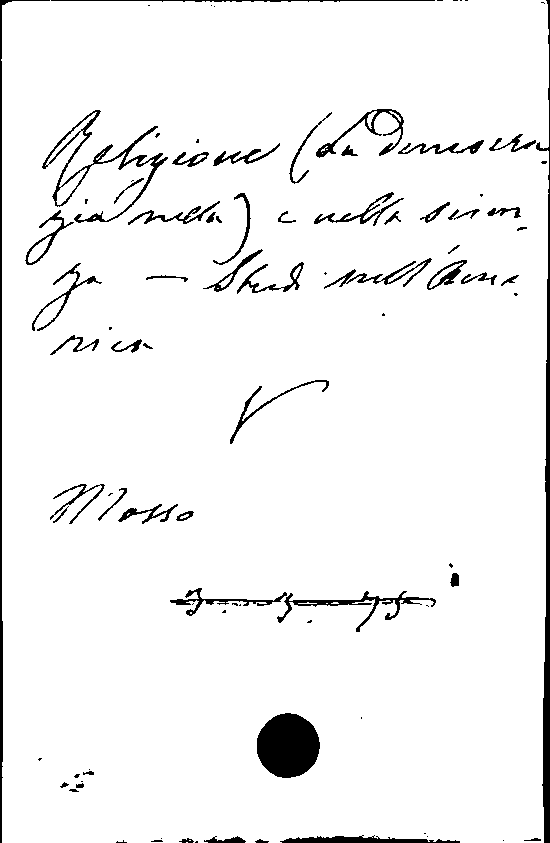 Religione (La democra-
zia nella) e nella scien-
za — Studi sull'Ame-
rica
V
Mosso
3. 3. 75